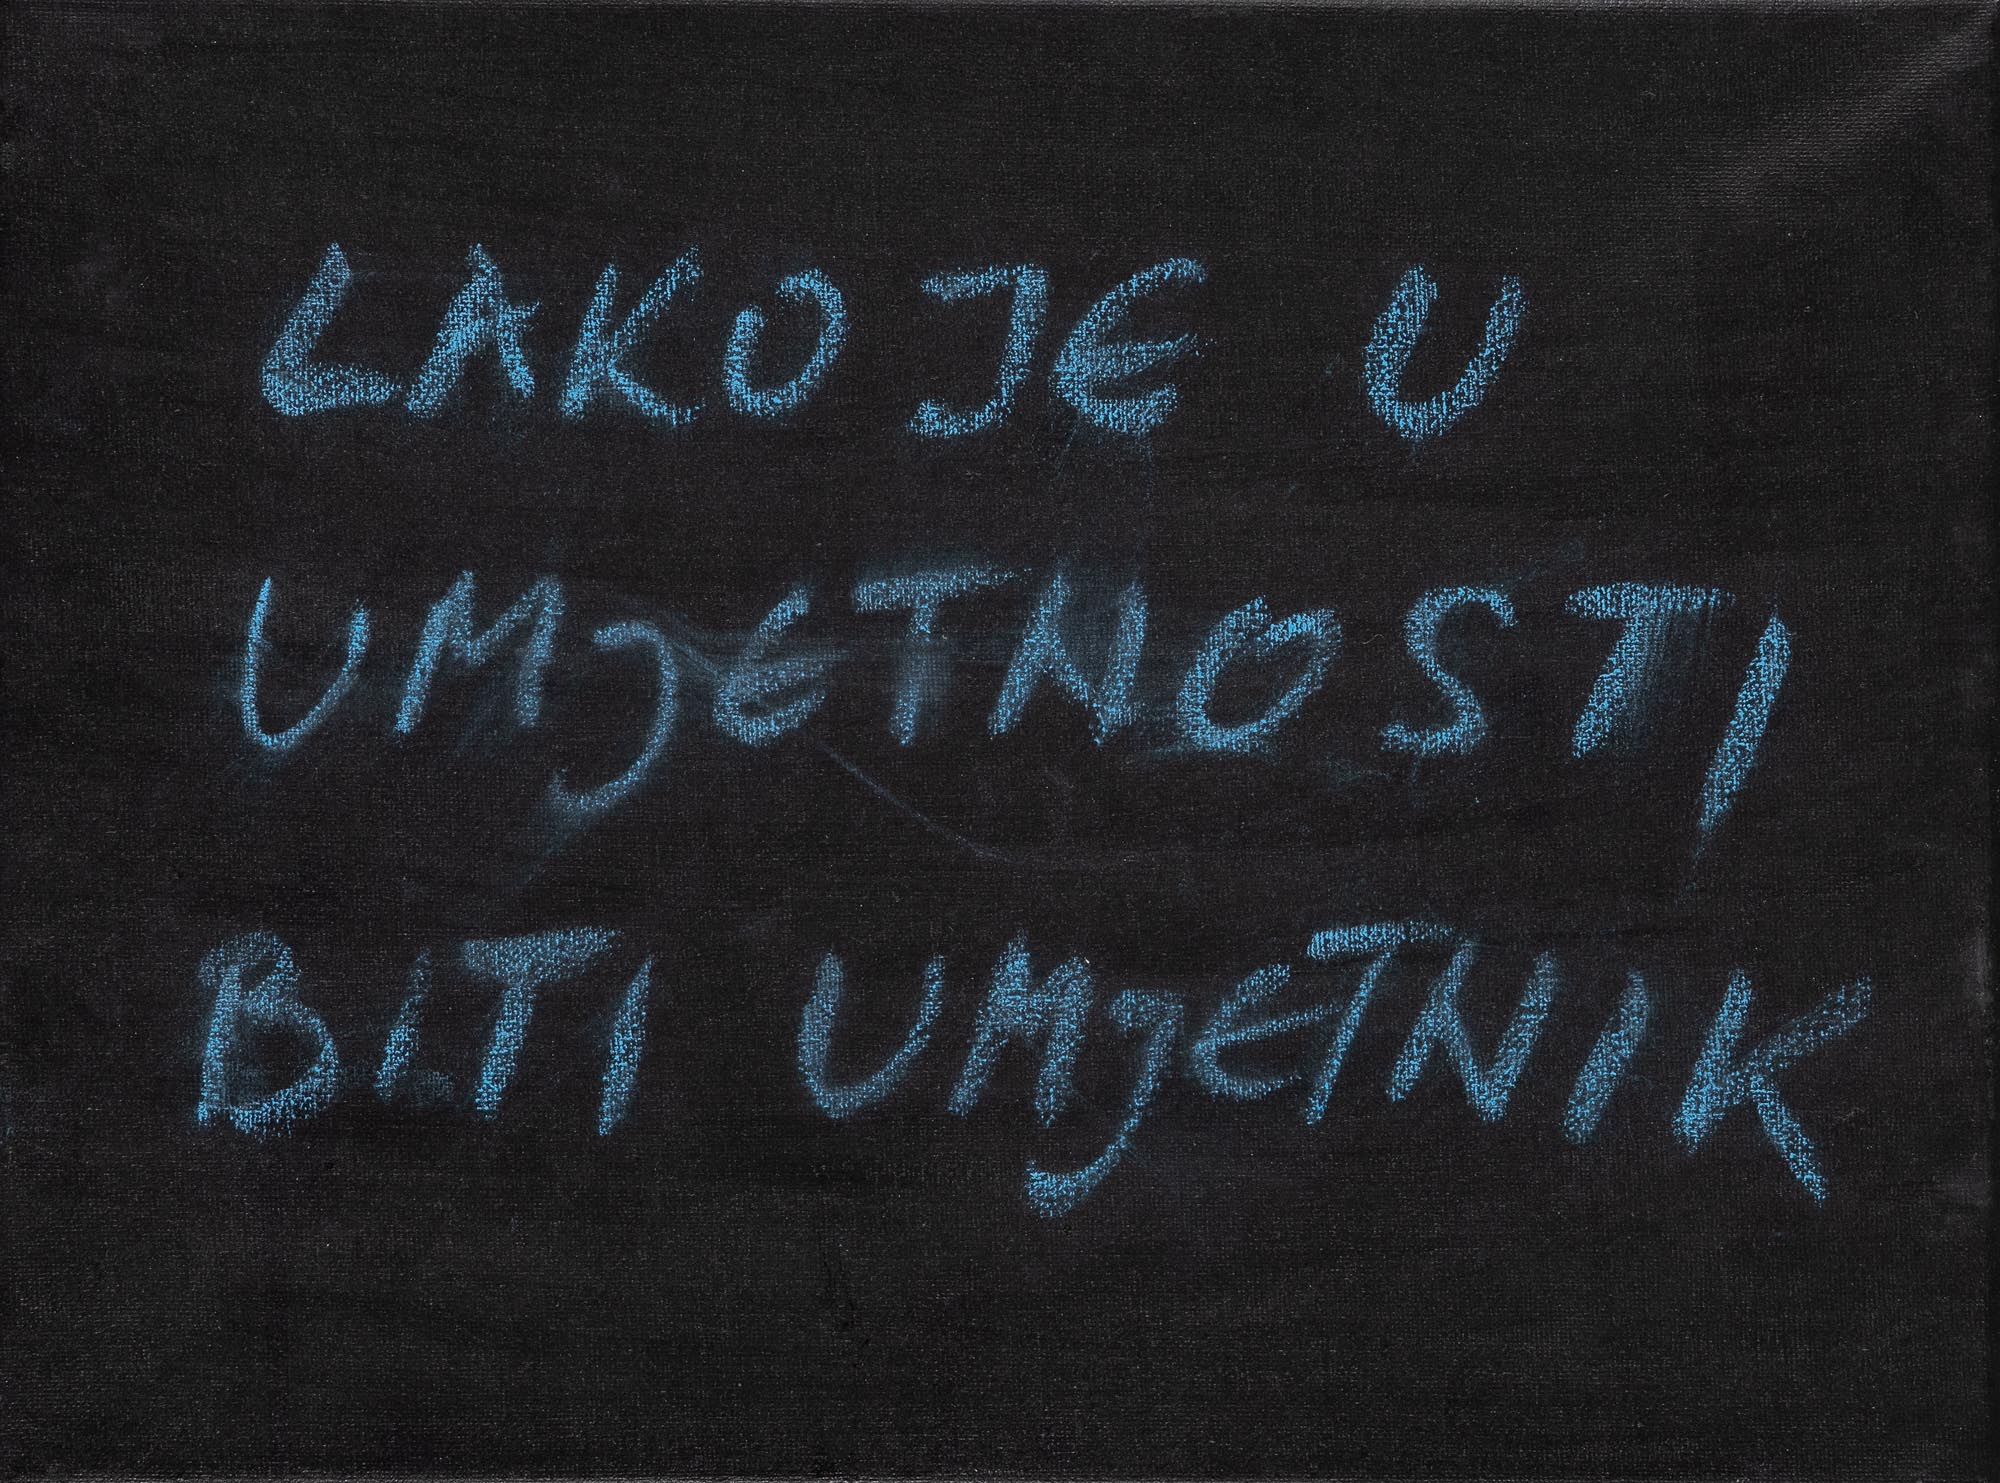 LAKO JE U
UMJETNOSTI
BITI UMJETNIK